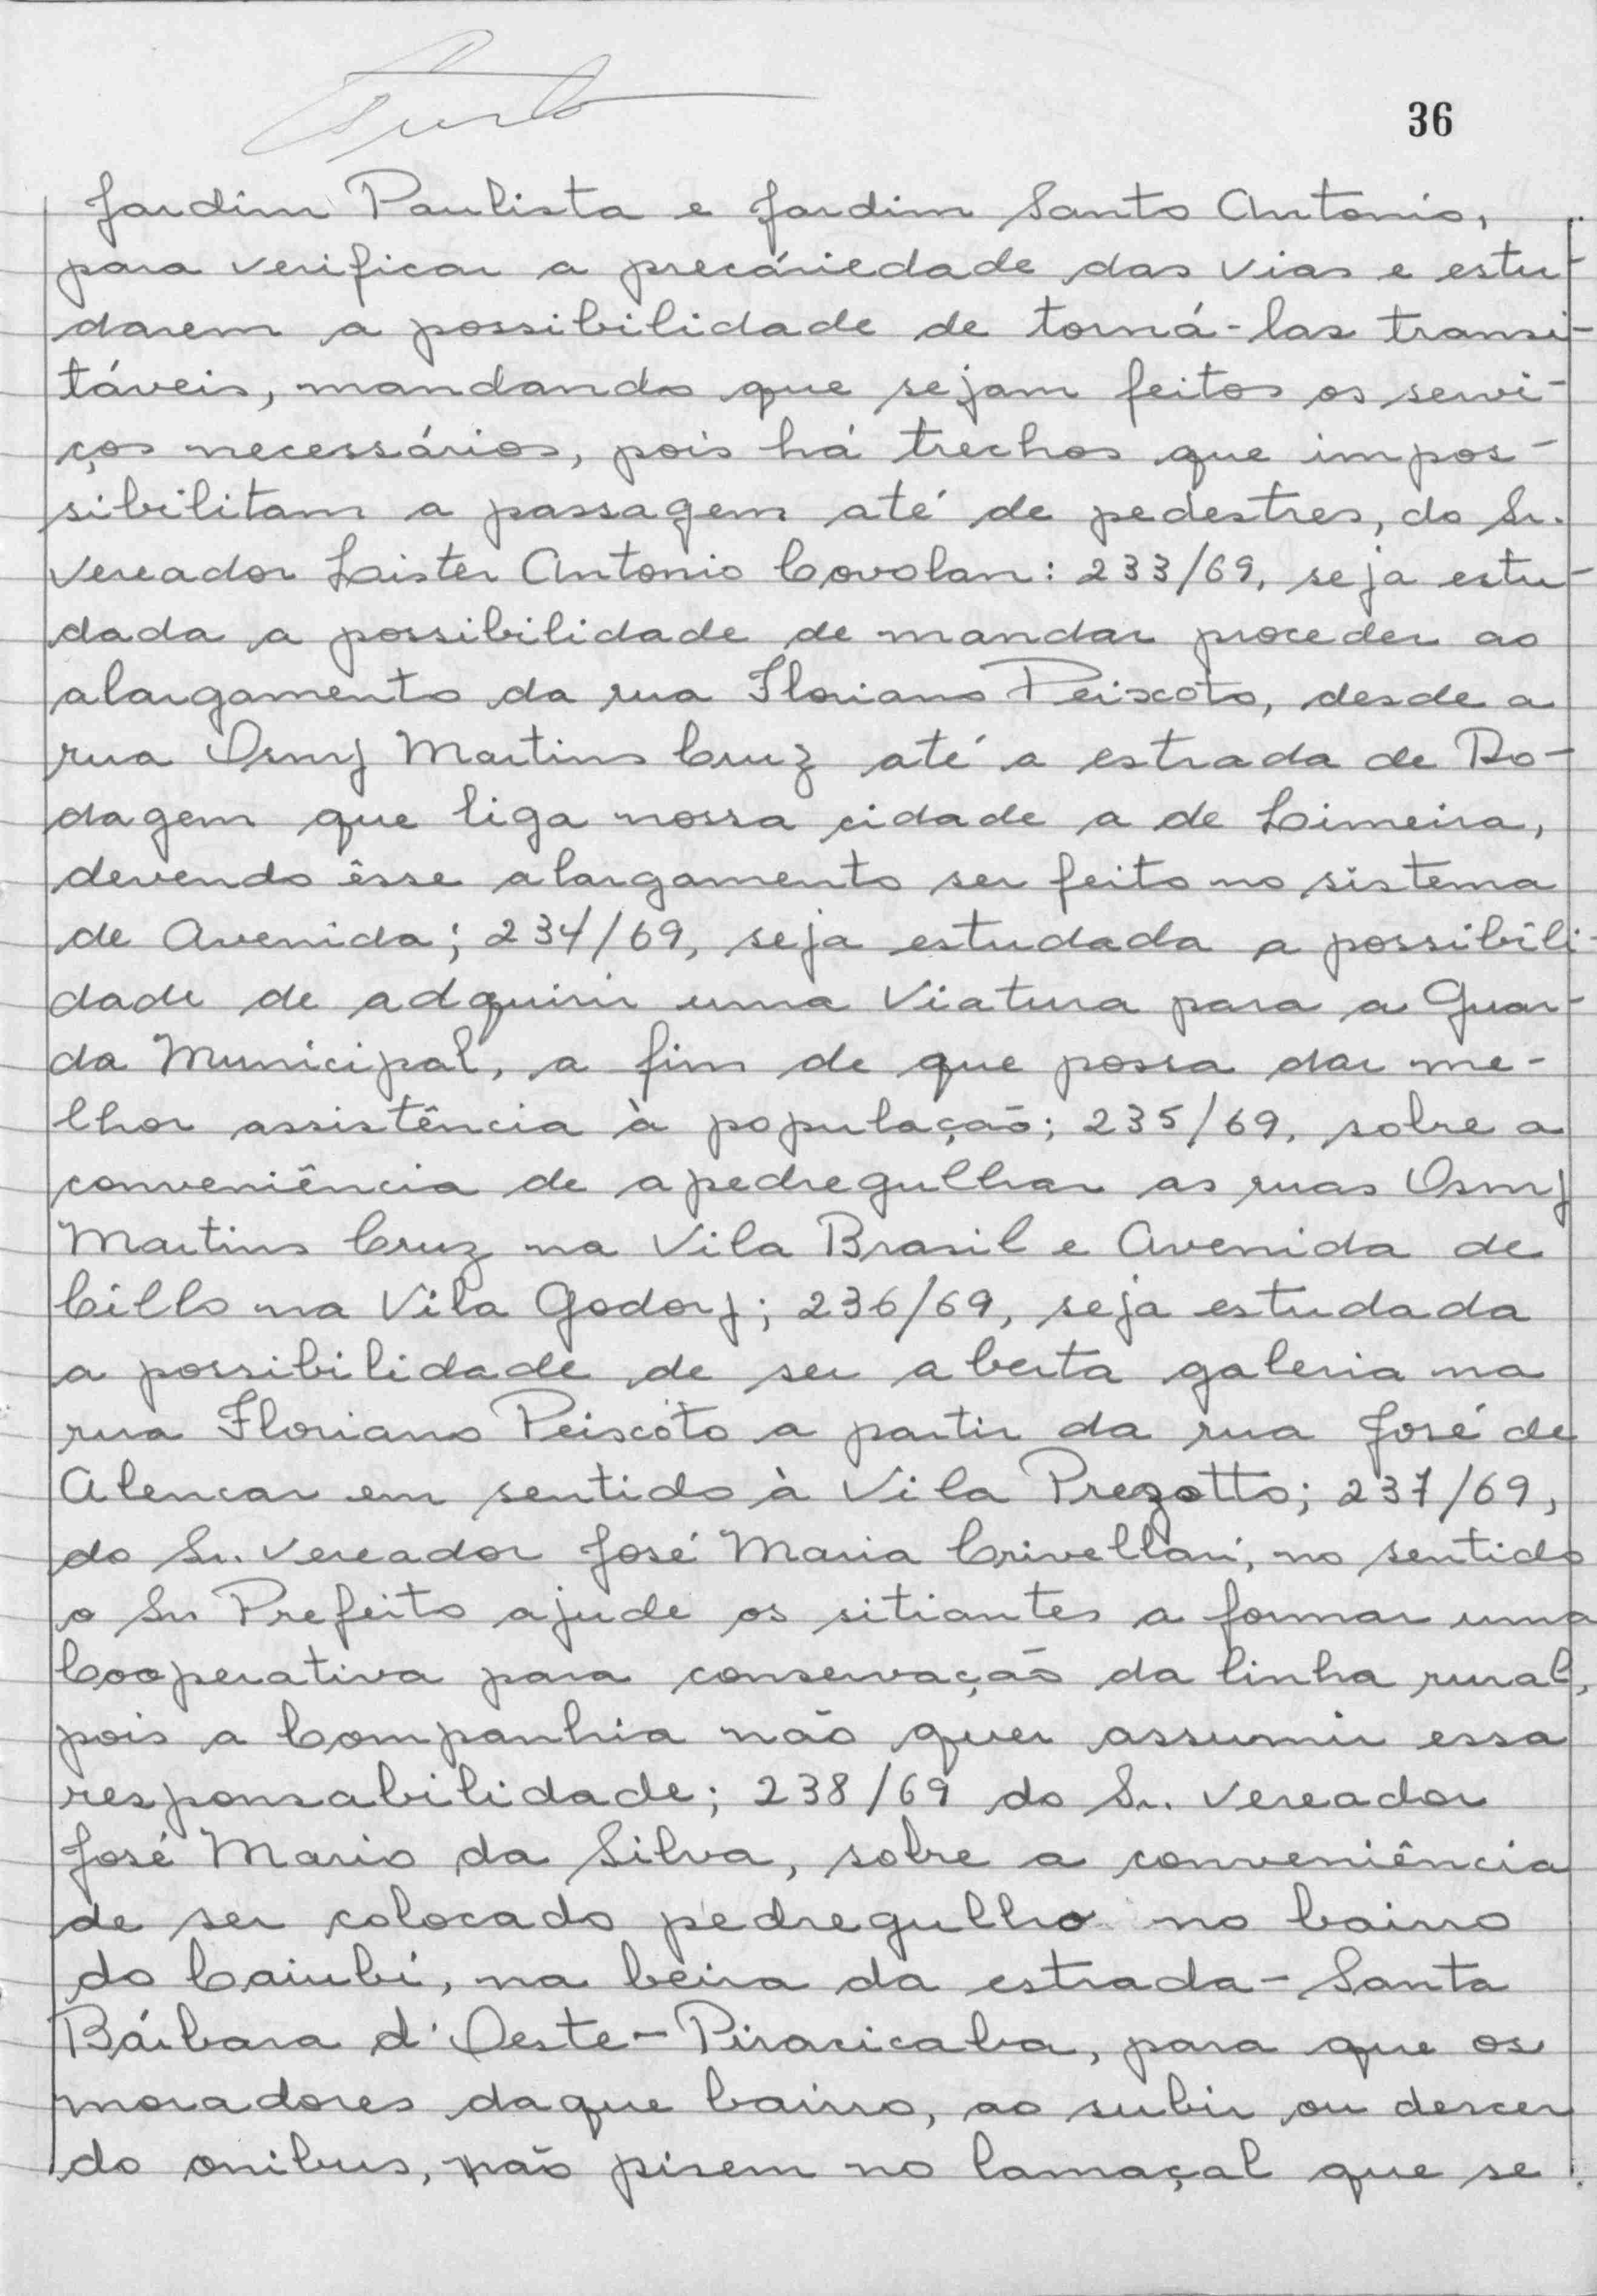 36
Jardim Paulista e Jardim Santo Antonio,
para verificar a precáriedade das vias e estu-
darem a possibilidade de torná-las transi-
táveis, mandando que sejam feitos os servi-
ços necessários, pois há trechos que impos-
sibilitam a passagem até de pedestres, do Sr.
Vereador Lister Antonio Covolan: 233/69, seja estu-
dada a possibilidade de mandar proceder ao
alargamento da rua Floriano Peixoto, desde a
rua Osmy Martins Cruz até a estrada de Ro-
dagem que liga nossa cidade a de Limeira,
devendo êsse alargamento ser feito no sistema
de Avenida; 234/69, seja estudada a possibili-
dade de adquirir uma Viatura para a Guar-
da Municipal, a fim de que possa dar me-
lhor assistência à população; 235/69, sobre a
conveniência de apedregulhar as ruas Osmy
Martins Cruz na Vila Brasil e Avenida de
Cillo na Vila Godoy; 236/69, seja estudada
a possibilidade de ser aberta galeria na
rua Floriano Peixôto a partir da rua José de
Alencar em sentido à Vila Prezotto; 237/69,
do Sr. Vereador José Maria Crivellari, no sentido
o Sr Prefeito ajude os sitiantes a formar uma
Cooperativa para conservação da linha rural,
pois a Companhia não quer assumir essa
responsabilidade; 238/69 do Sr. Vereador
José Mario da Silva, sobre a conveniência
de ser colocado pedregulho no bairro
do Caiubí, na beira da estrada - Santa
Bárbara d'Oeste - Piracicaba, para que os
moradores daque bairro, ao subir ou descer
do onibus, não pisem no lamaçal que se